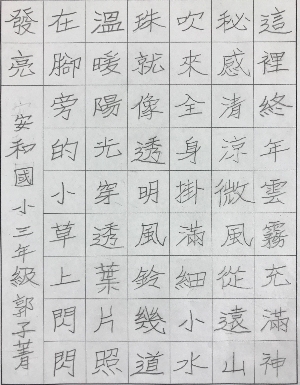 這裡終年雲霧充滿神
秘感清涼微風從遠山
吹來全身掛滿細小水
珠就像透明風鈴幾道
溫暖陽光穿透葉片照
在腳旁的小草上閃閃
發亮
安和國小三年級郭子菁